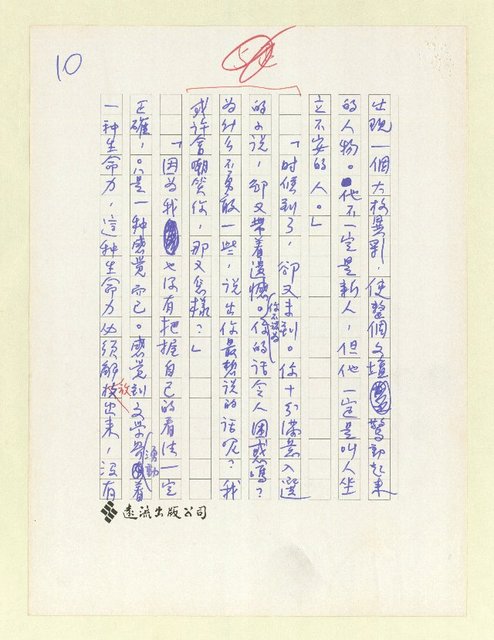 10
54
出現一個大放異彩,使整個文壇驚動起來
的人物。他不一定是新人,但他一定是叫人坐
立不安的人。」
「時候到了,卻又未到。你十分滿意入選
的小說,卻又帶着遺憾。你不認為你的話令人困惑嗎?
為什么不勇敢一些,說出你最想說的話呢?我
或许會嘲笑你,那又怎樣?」
「因為我也沒有把握自己的看法一定
正確,只是一种感觉而已。感觉到文學界湧動着
一种生命力,這种生命力必須解放出來,沒有
遠流出版公司